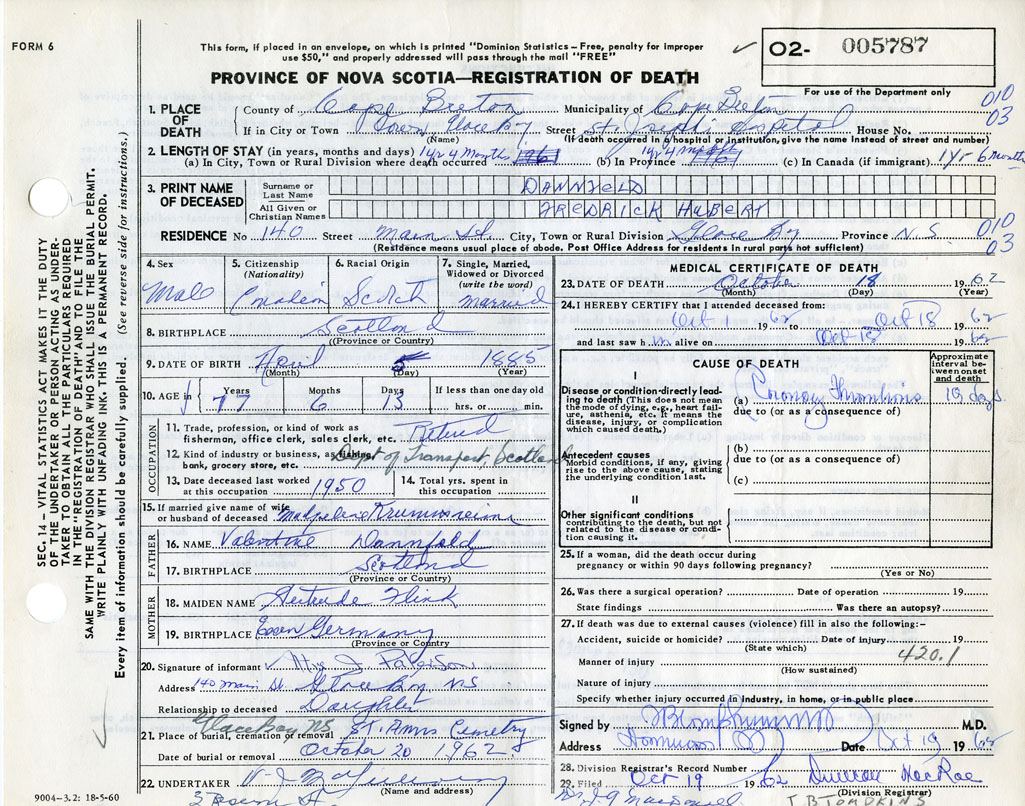 FORM 6
This form, if placed in an envelope, on which is printed "Dominion Statistics – Free, penalty for improper
use $50," and properly addressed will pass through the mail "FREE"
✓ O2- 005787
PROVINCE OF NOVA SCOTIA—REGISTRATION OF DEATH
For use of the Department only
010
03
1. PLACE OF DEATH County of Cape Breton Municipality of Cape Breton
If in City or Town Town Glace Bay Street St. Joseph Hospital House No.
(Name) (If death occurred in a hospital or institution, give name instead of street and number)
2. LENGTH OF STAY (in years, months and days)
(a) In City, Town or Rural Division where death occurred 1 yr 4 Month 1961 (b) In Province 1 yr 4 month 1961 (c) In Canada (if immigrant) 1 yr 6 months
3. PRINT NAME OF DECEASED
Surname or Last Name DANNFELD
All Given or Christian Names FREDRICK HUBERT
RESIDENCE No 140 Street Main St City, Town or Rural Division Glace Bay Province N.S.
010
03
(Residence means usual place of abode. Post Office Address for residents in rural parts not sufficient)
4. Sex
Male
5. Citizenship
(Nationality)
6. Racial Origin
Scotch
7. Single, Married, Widowed or Divorced
(write the word)
married
8. BIRTHPLACE Scotland
(Province or Country)
9. DATE OF BIRTH April 5 1885
(Month) (Day) (Year)
10. AGE in Years 77 Months 6 Days 13 If less than one day old
hrs. or min.
OCCUPATION
11. Trade, profession, or kind of work as
fisherman, office clerk, sales clerk, etc. Retired
12. Kind of industry or business, as fishing,
bank, grocery store, etc. Dept of Transport, Scotland
13. Date deceased last worked
at this occupation 1950
14. Total yrs. spent in
this occupation
15. If married give name of wife
or husband of deceased
FATHER
16. NAME Valentine Dannfeld
17. BIRTHPLACE Scotland
(Province or Country)
MOTHER
18. MAIDEN NAME Gertrude Flink
19. BIRTHPLACE Essen Germany
(Province or Country)
20. Signature of informant Mrs J. Paterson
Address 140 Main St Glace Bay NS
Relationship to deceased Daughter
Glace Bay NS.
21. Place of burial, cremation or removal St. Anns Cemetry
Date of burial or removal October 20 1962
22. UNDERTAKER
(Name and address)
MEDICAL CERTIFICATE OF DEATH
23. DATE OF DEATH October 18 1962
(Month) (Day) (Year)
24. I HEREBY CERTIFY that I attended deceased from:
Oct 1 1962 to Oct 18 1962
and last saw h im alive on Oct 18 1962
CAUSE OF DEATH
Approximate interval between onset and death
I
Disease or condition directly leading to death (This does not mean the mode of dying, e.g., heart failure, asthenia, etc. It means the disease, injury, or complication which caused death.)
(a) Coronary Thrombosis 18 days
due to (or as a consequence of)
Antecedent causes
Morbid conditions, if any, giving rise to the above cause, stating the underlying condition last.
(b)
due to (or as a consequence of)
(c)
II
Other significant conditions
contributing to the death, but not related to the disease or condition causing it.
25. If a woman, did the death occur during
pregnancy or within 90 days following pregnancy?
(Yes or No)
26. Was there a surgical operation? Date of operation 19
State findings Was there an autopsy?
27. If death was due to external causes (violence) fill in also the following:-
Accident, suicide or homicide? Date of injury 19
(State which)
420.1
Manner of injury
(How sustained)
Nature of injury
Specify whether injury occurred in industry, in home, or in public place
Signed by M.D.
Address Date Oct 19 1962
28. Division Registrar's Record Number
29. Filed Oct 19 1962 Duncan MacRae
(Division Registrar)
SEC. 14 – VITAL STATISTICS ACT MAKES IT THE DUTY
OF THE UNDERTAKER OR PERSON ACTING AS UNDER-
TAKER TO OBTAIN ALL THE PARTICULARS REQUIRED
IN THE "REGISTRATION OF DEATH" AND TO FILE THE
SAME WITH THE DIVISION REGISTRAR WHO SHALL ISSUE THE BURIAL PERMIT.
WRITE PLAINLY WITH UNFADING INK. THIS IS A PERMANENT RECORD.
Every item of information should be carefully supplied. (See reverse side for instructions.)
9004-3.2: 18-5-60